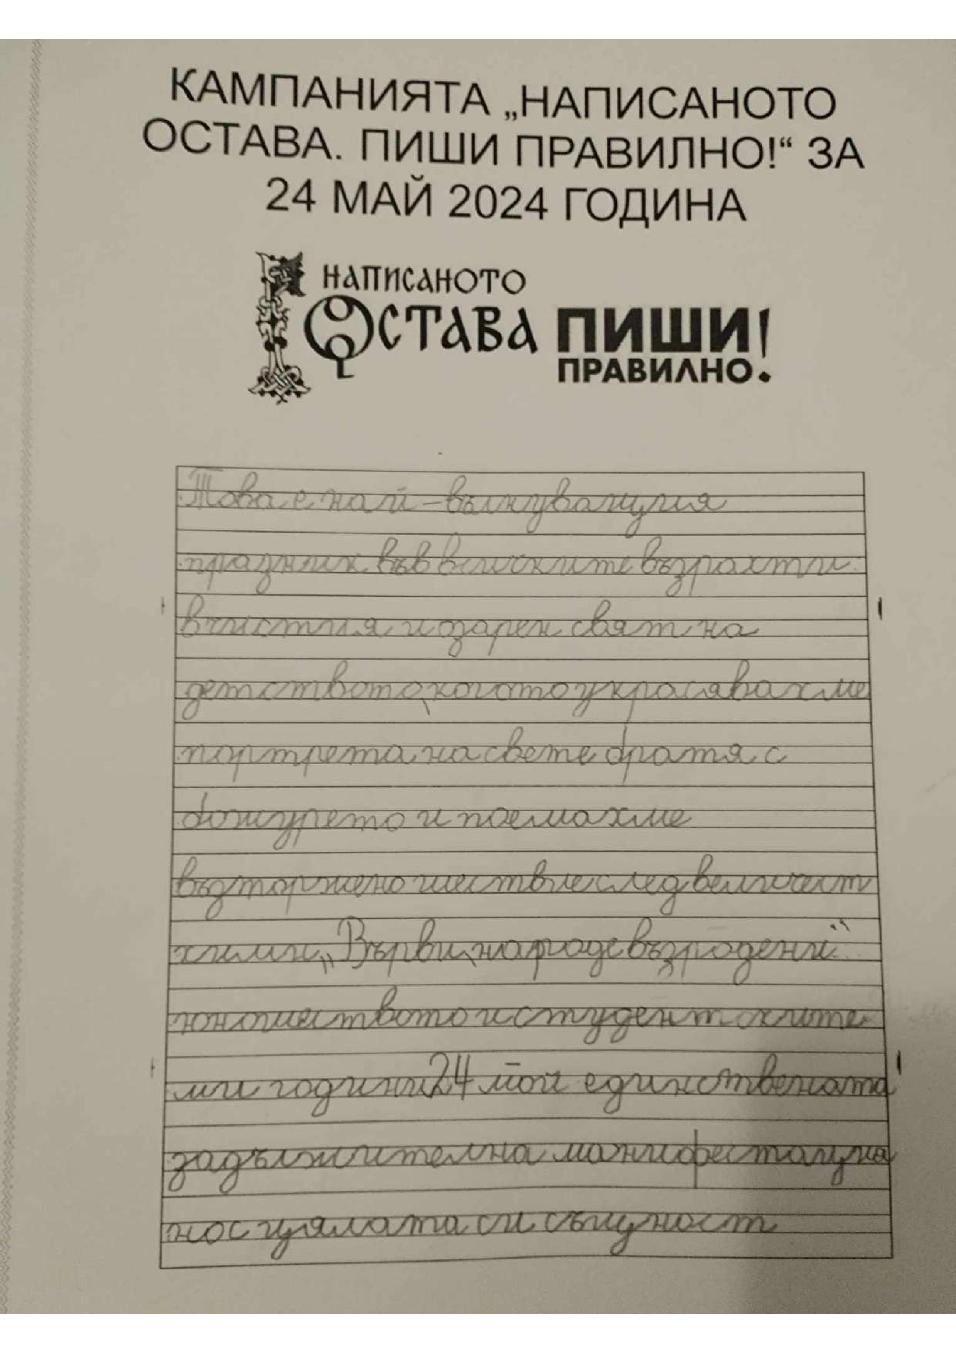 КАМПАНИЯТА „НАПИСАНОТО
ОСТАВА. ПИШИ ПРАВИЛНО!“ ЗА
24 МАЙ 2024 ГОДИНА
НАПИСАНОТО
ОСТАВА ПИШИ!
ПРАВИЛНО
Това е най-вълнуващия
празник във всичките възрахти
в чистия и озарен свят на
детството, когато украсявахме
портрета на свете братя с
божурето и поемахме
възторжено шествие след величест
химн „Върви, народе възродени“
юношеството и студентските
ми години 24 май единствената
задължителна манифестация
но с цялата си същност